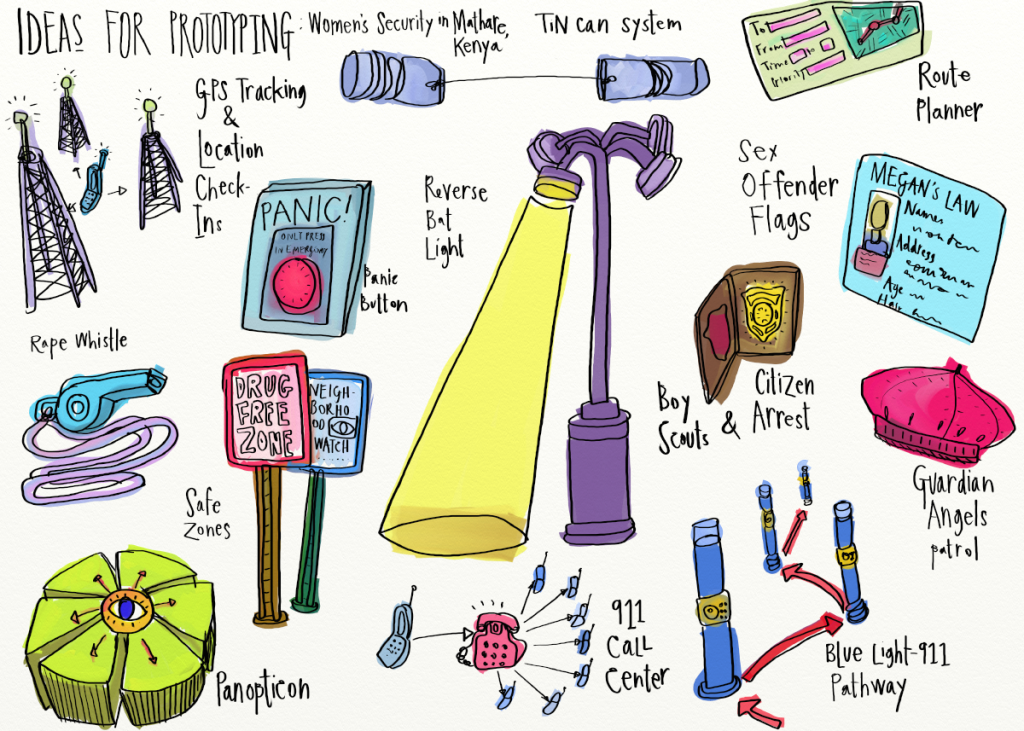 IDEAS FOR PROTOTYPING: Women's Security in Mathare,
Kenya
TiN can system
To
From
Time to
Priority
Route
Planner
GPS Tracking
&
Location
Check-
Ins
PANIC!
ONLY PRESS
IN EMERGENCY
Panic
Button
Reverse
Bat
Light
Sex
Offender
Flags
MEGAN'S LAW
Names
Address
Age
Hair
Rape Whistle
DRUG
FREE
ZONE
NEIGH-
BORHO
OD
WATCH
Safe
Zones
Boy
Scouts
&
Citizen
Arrest
Guardian
Angels
patrol
Panopticon
911
Call
Center
Blue Light-911
Pathway